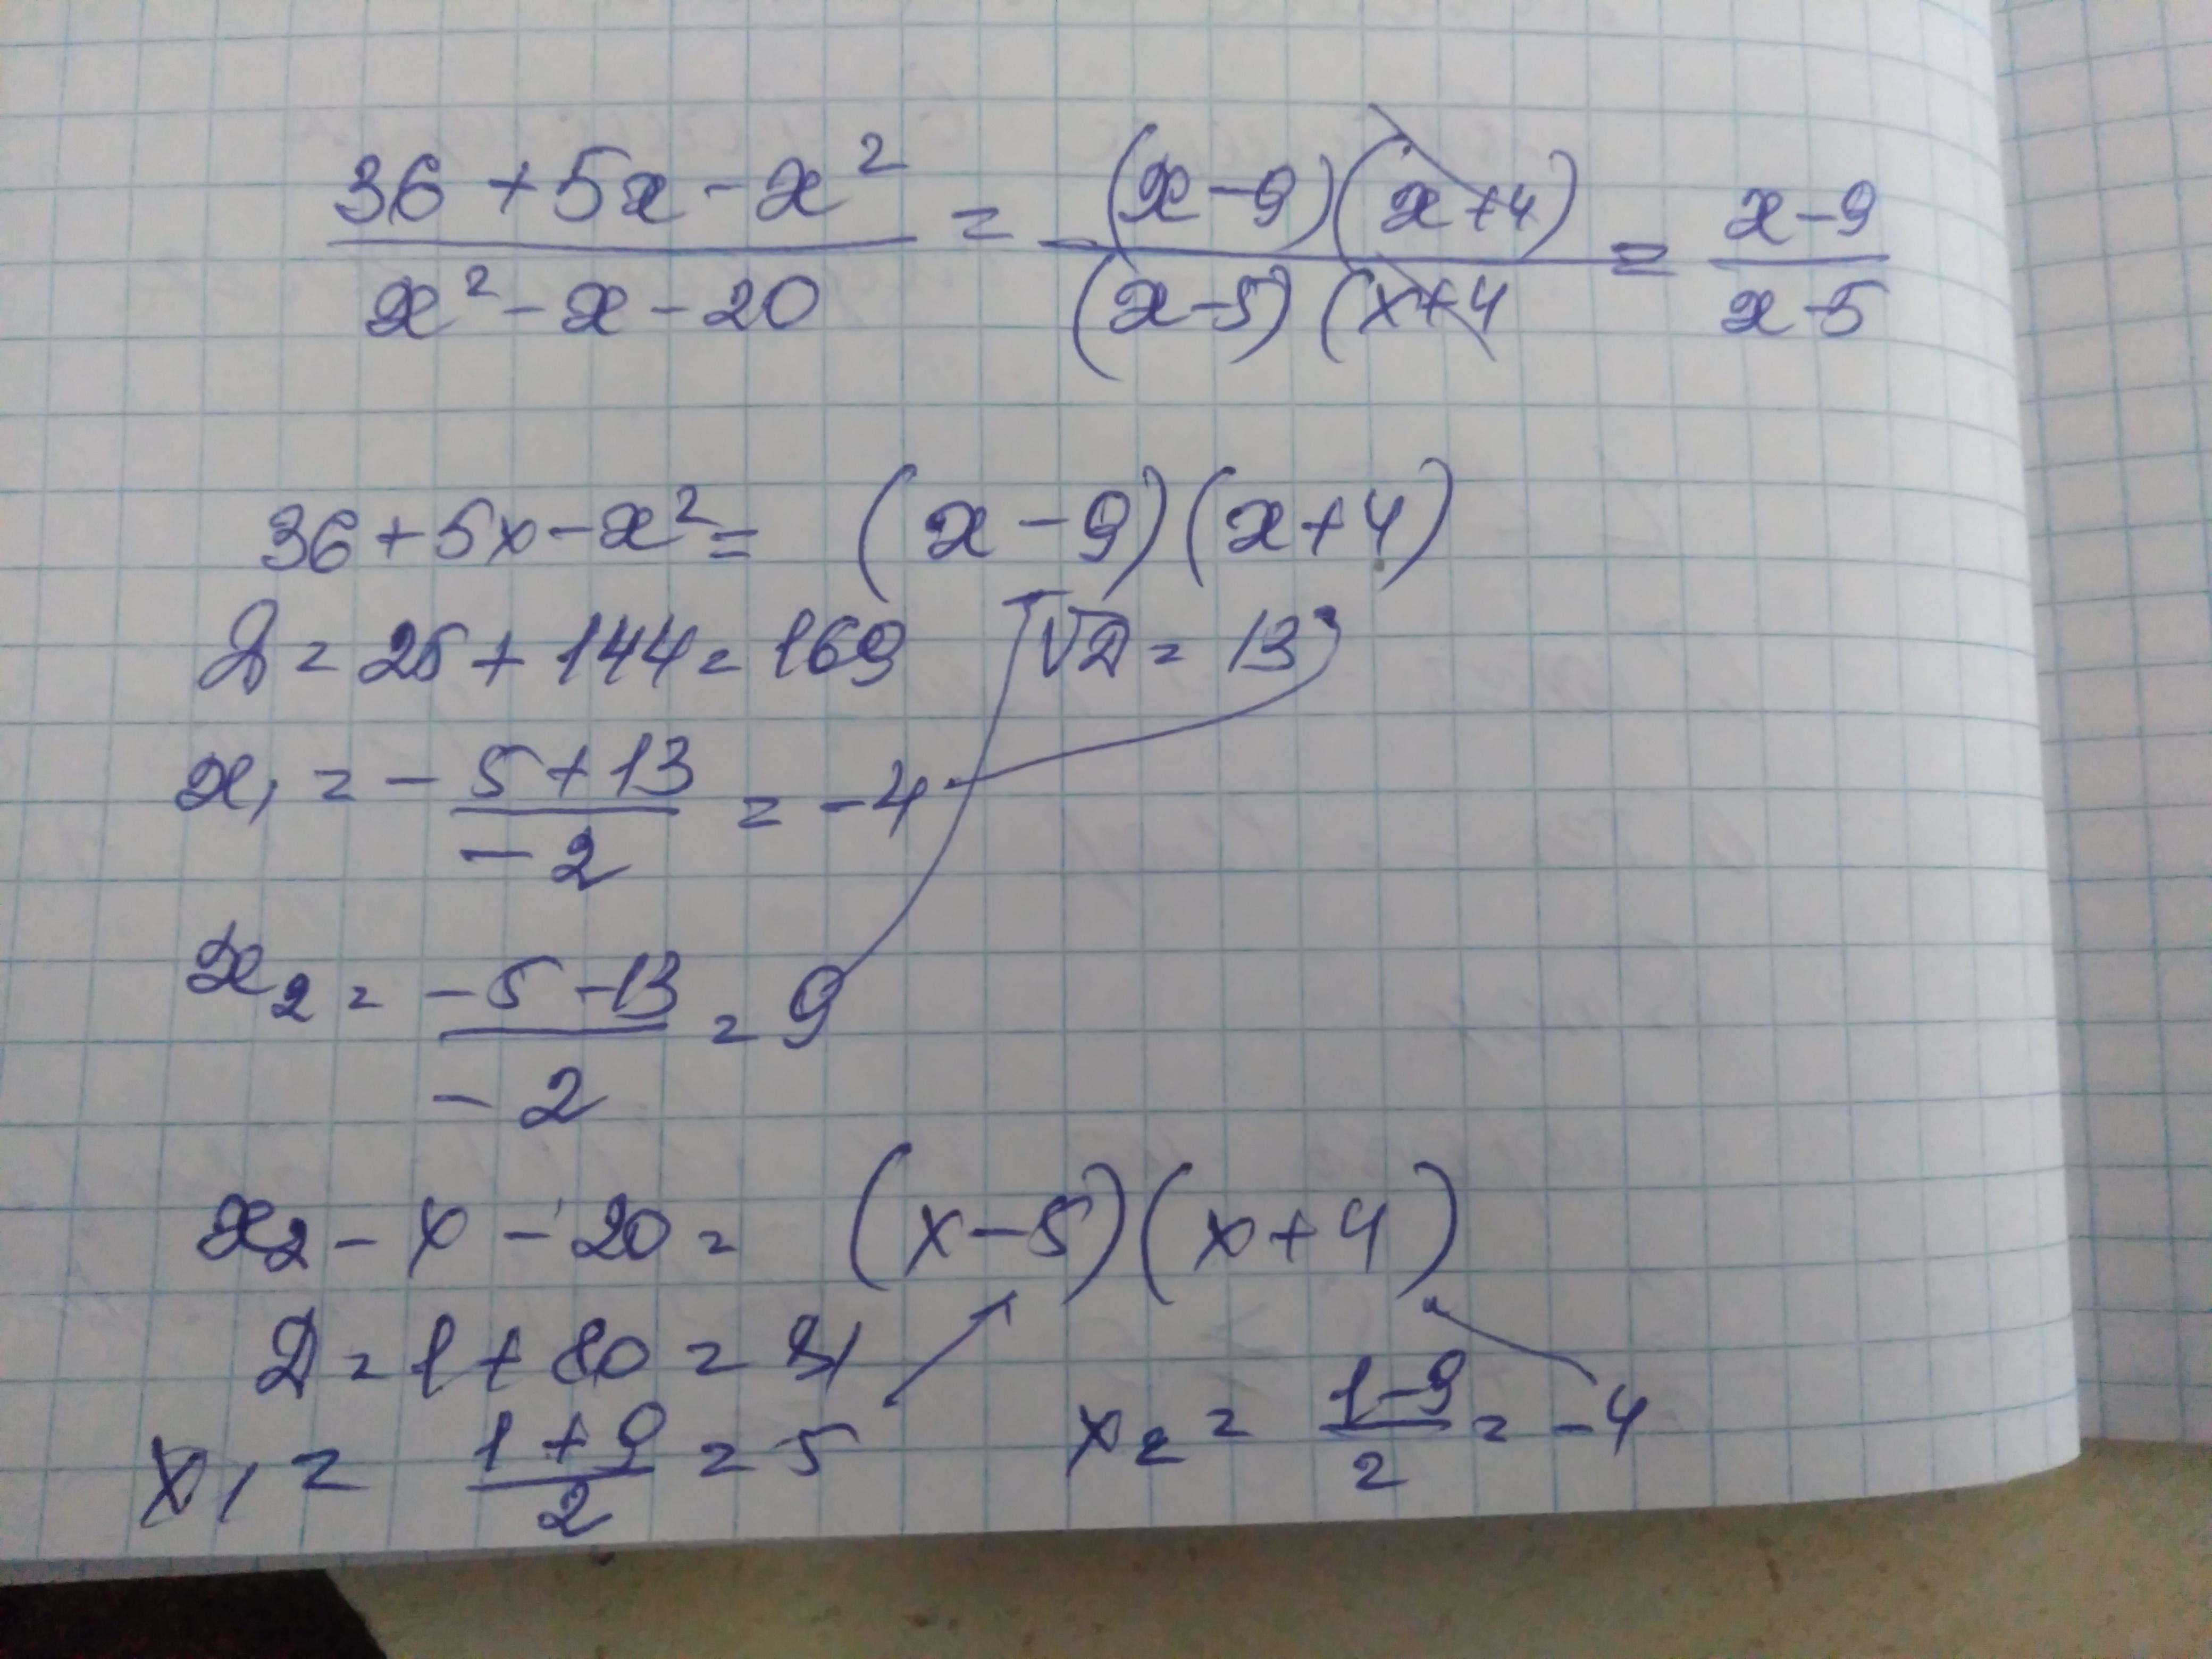 (36 + 5x - x²)/(x² - x - 20) = ((x - 9)(x + 4))/((x - 5)(x + 4) = (x - 9)/(x - 5)
36 + 5x - x² = (x - 9)(x + 4)
D = 25 + 144 = 169 √D = 13
x₁ = - (5 + 13)/(-2) = -4
x₂ = (-5 - 13)/(-2) = 9
x₂ - x - 20 = (x - 5)(x + 4)
D = 1 + 80 = 81
x₁ = (1 + 9)/2 = 5 x₂ = (1 - 9)/2 = -4